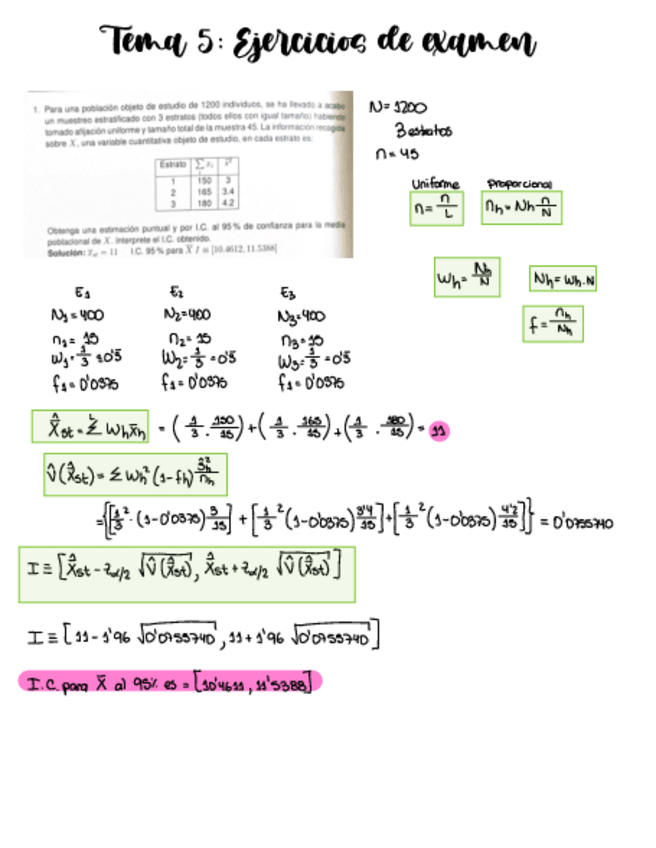 Tema 5: Ejercicios de examen
1. Para una población objeto de estudio de 1200 individuos, se ha llevado a acabo
un muestreo estratificado con 3 estratos (todos ellos con igual tamaño) habiendo
tomado afijación uniforme y tamaño total de la muestra 45. La información recogida
sobre X, una variable cuantitativa objeto de estudio, en cada estrato es:
Estrato Σ xᵢ ŝ²
1 150 3
2 165 3.4
3 180 4.2
Obtenga una estimación puntual y por I.C. al 95 % de confianza para la media
poblacional de X. Interprete el I.C. obtenido.
Solución: x̄st = 11 I.C. 95 % para X̄ I = [10.4612, 11.5388]
N = 1200
3 estratos
n = 45
Uniforme Proporcional
n = n/L nh = Nh n/N
Wh = Nh/N Nh = Wh · N
f = nh/Nh
E1 E2 E3
N1 = 400 N2 = 400 N3 = 400
n1 = 15 n2 = 15 n3 = 15
W1 = 1/3 = 0'3 W2 = 1/3 = 0'3 W3 = 1/3 = 0'3
f1 = 0'0375 f1 = 0'0375 f1 = 0'0375
X̂st = Σ Wh x̄h = (1/3 · 150/15) + (1/3 · 165/15) + (1/3 · 180/15) = 11
V̂(X̂st) = Σ Wh² (1-fh) ŝh²/nh
= {[1/3² · (1-0'0375) 3/15] + [1/3² (1-0'0375) 3'4/15] + [1/3² (1-0'0375) 4'2/15]} = 0'0755740
I ≡ [X̂st - zα/2 √V̂(X̂st), X̂st + zα/2 √V̂(X̂st)]
I ≡ [11 - 1'96 √0'0755740, 11 + 1'96 √0'0755740]
I.C. para X̄ al 95% es = [10'4611, 11'5388]